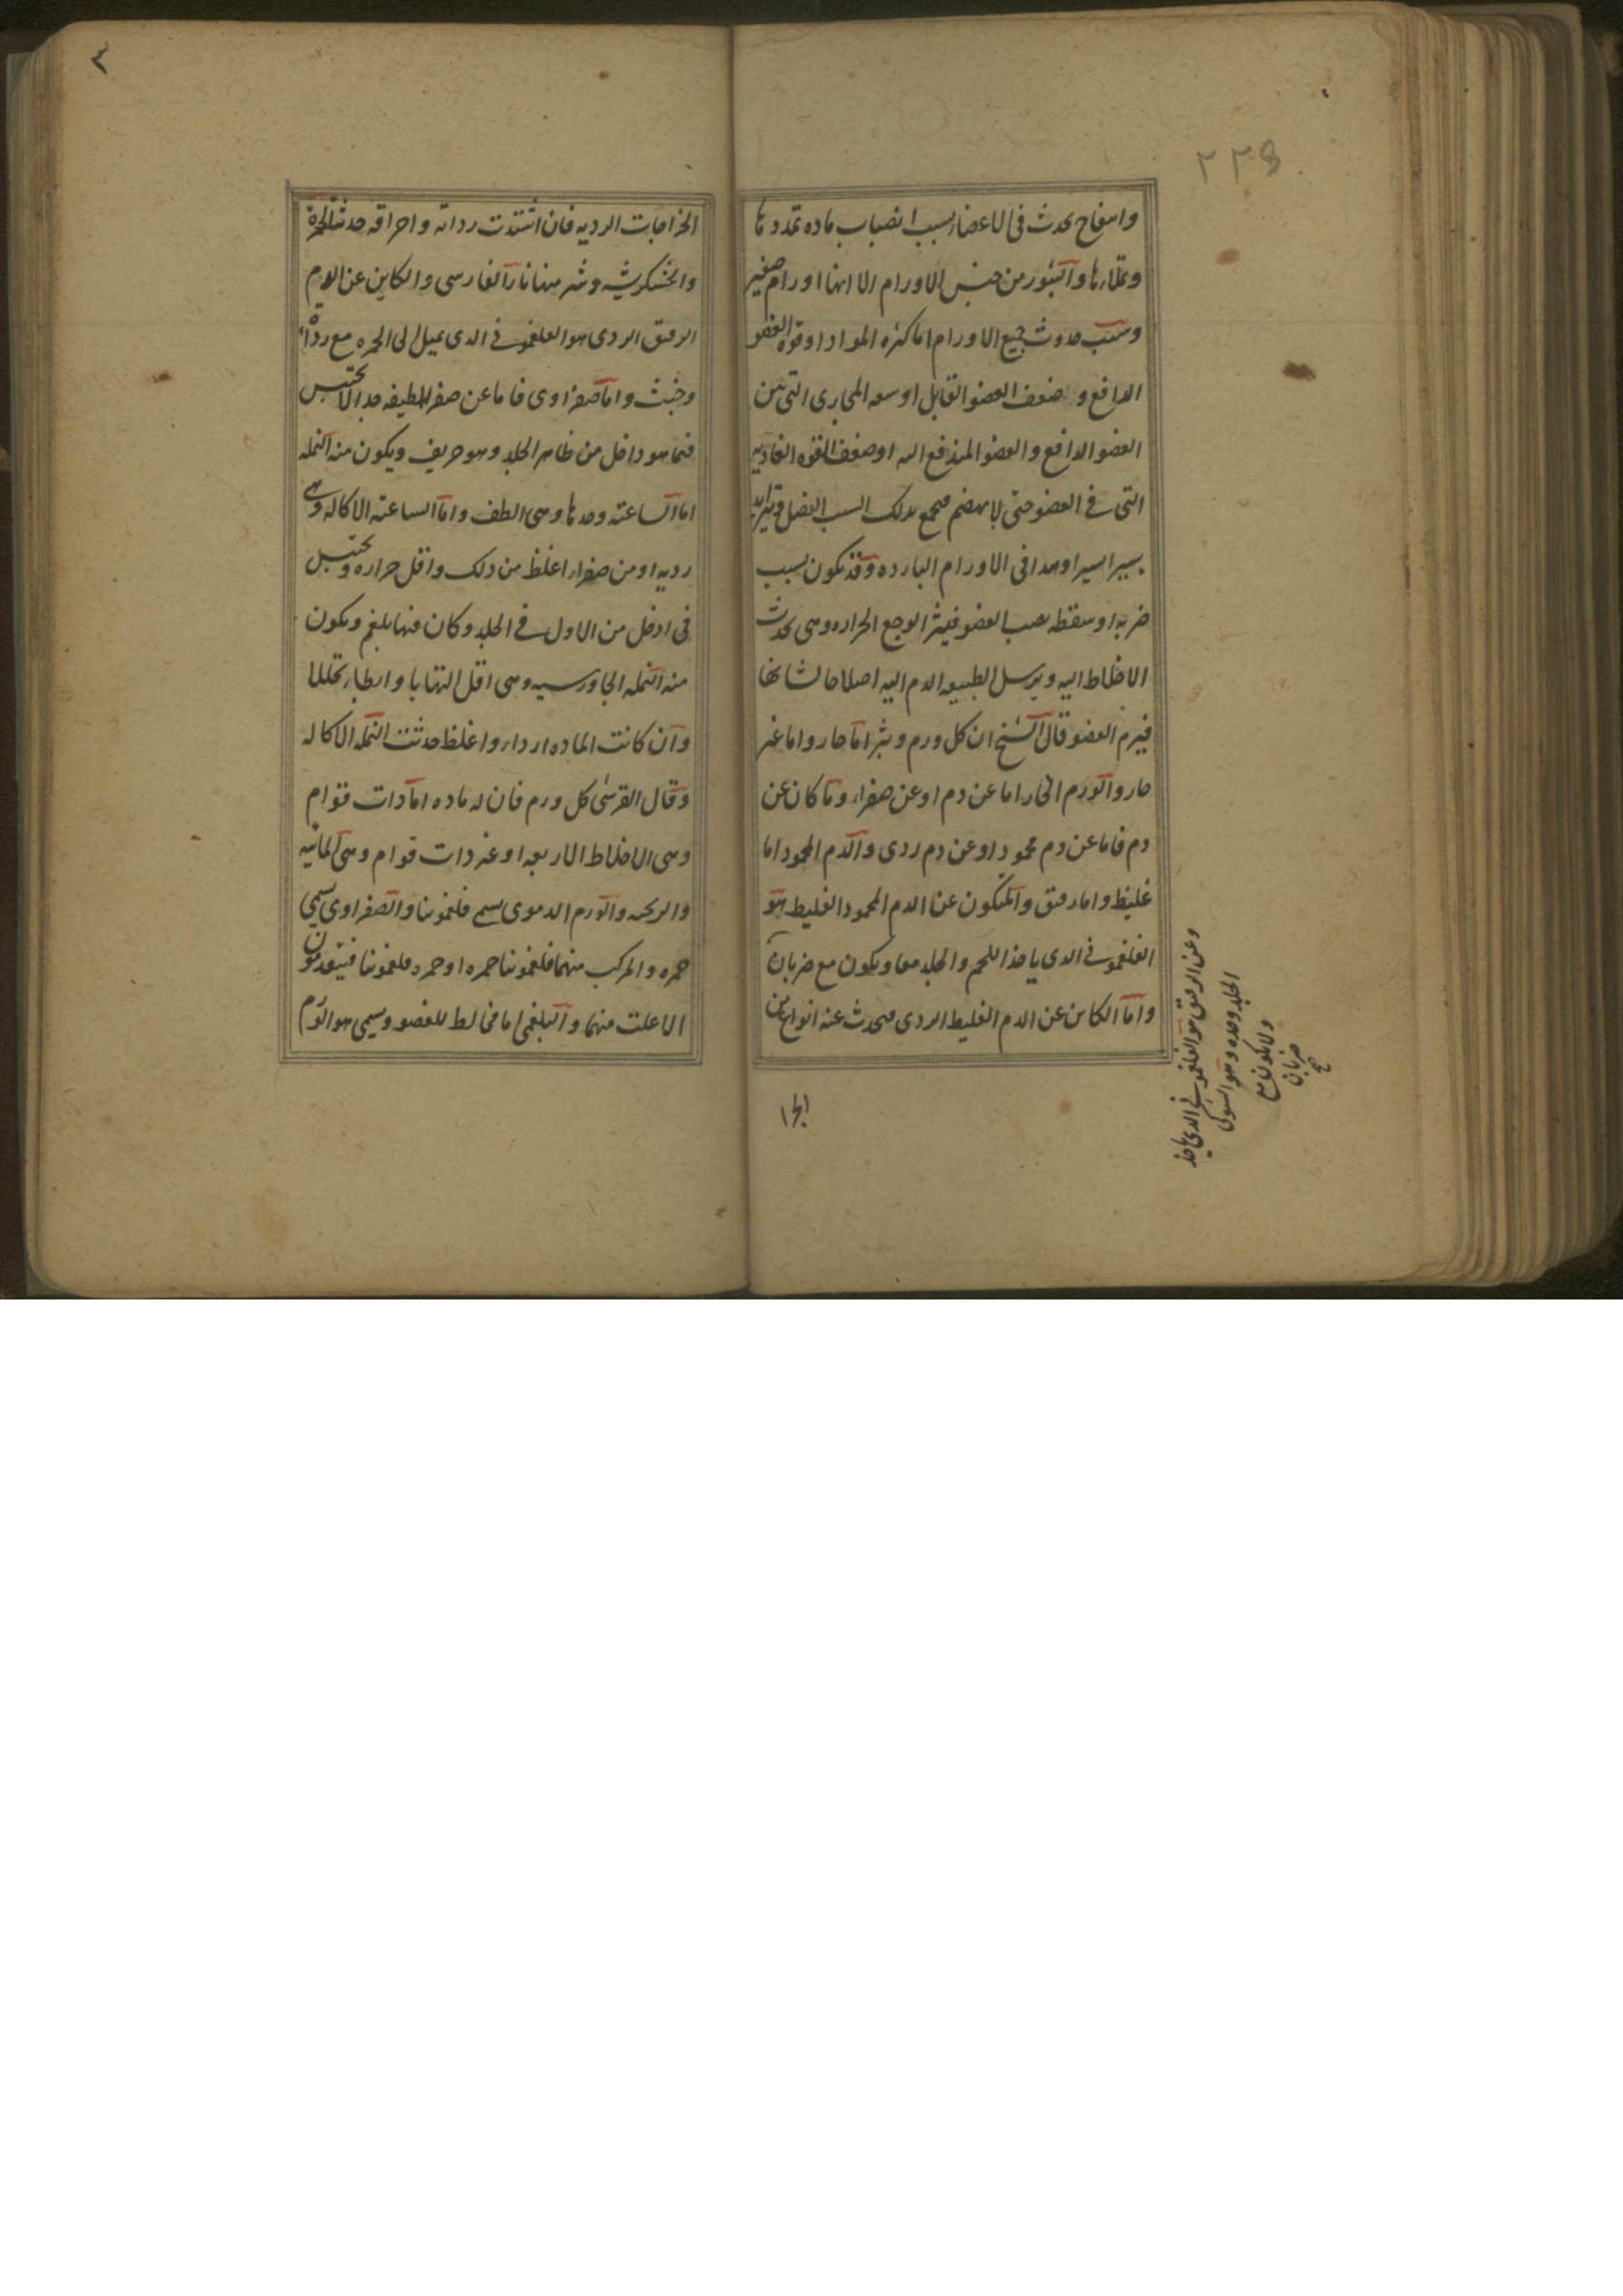 ٢٢٣
وانتفاخ يحدث فى الاعضاء بسبب انصباب ماده تمددها
وتملاءها والبثور من جنس الاورام الا انها اورام صغير
وسبب حدوث جميع الاورام اما كثره المواد او قوه العضو
الدافع و ضعف العضو القابل او سعه المجارى التى بين
العضو الدافع والعضو المندفع اليه او ضعف القوه الغاديه
التى فى العضو حتى لا يهضم فيجمع بدلك السبب الفضل وتتزايد
يسيرا يسيرا وهدا فى الاورام البارده وقد يكون بسبب
ضربه او سقطه يصب العضو فيثر الوجع الحراره وهى تحدث
الاخلاط اليه ويرسل الطبيعه الدم اليه اصلاحا لشانها
فيرم العضو قال الشيخ ان كل ورم وبثر اما حار واما غير
حار والورم الحار اما عن دم او عن صفراء وما كان عن
دم فاما عن دم محمود او عن دم ردى والدم المحمود اما
غليظ واما رقيق والمتكون عن الدم المحمود الغليظ هو
الفلغمونى الدى ياخذ اللحم والجلد معا ويكون مع ضربان
واما الكاين عن الدم الغليظ الردى فيحدث عنه انواع من
وعن الرقيق هو الفلغمونى الدى ياخذ
الجلد وحده وهو الشوكى
ولا يكون مع
ضربان
صح
الخرا
٣
الخراجات الرديه فان اشتدت رداته واحراقه حدثت الحمرة
والخشكريشه وشر منها النار الفارسى والكاين عن الدم
الرقيق الردى هو الفلغمونى الدى يميل الى الحمره مع رداءة
وخبث واما صفراوى فاما عن صفرا لطيفه جدا لا تحتبس
فيما هو داخل من ظاهر الجلد وهو حريف ويكون منه النمله
اما الساعيه وحدها وهى الطف واما الساعيه الاكاله وهى
رديه او من صفراء اغلظ من دلك واقل حراره وتحتبس
فى ادخل من الاول فى الجلد وكان فيها بلغم ويكون
منه النمله الجاورسيه وهى اقل التهابا وابطاء تحللا
وان كانت الماده اردا واغلظ حدثت النمله الاكاله
وقال القرشى كل ورم فان له ماده اما دات قوام
وهى الاخلاط الاربعه او غير دات قوام وهى المائيه
والريحيه والورم الدموى يسمى فلغمونيا والصفراوى يسمى
حمره والمركب منهما فلغمونيا حمره او حمره فلغمونيا فيقدمون
الاغلب منهما والبلغمى اما مخالط للعضو ويسمى هو الورم